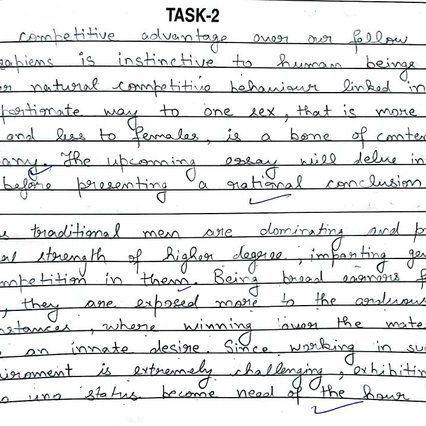 TASK-2
competitive advantage over our fellow
sapiens is instinctive to human beings
or natural competitive behaviour linked in
portionate way to one sex, that is more
and less to females, is a bone of conten
any. The upcoming essay will delve in
before presenting a rational conclusion
s traditional men are dominating and p
al strength of higher degree, imparting ge
mpetition in them. Being bread earners f
, they are exposed more to the arduous
nstances, where winning over the mate
an innate desire. Since working in su
ironment is extremely challenging, exhibitin
uno status become need of the hour